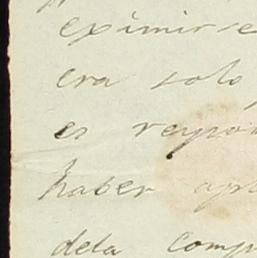 eximirse
era solo
es respon
haber apr
dela comp